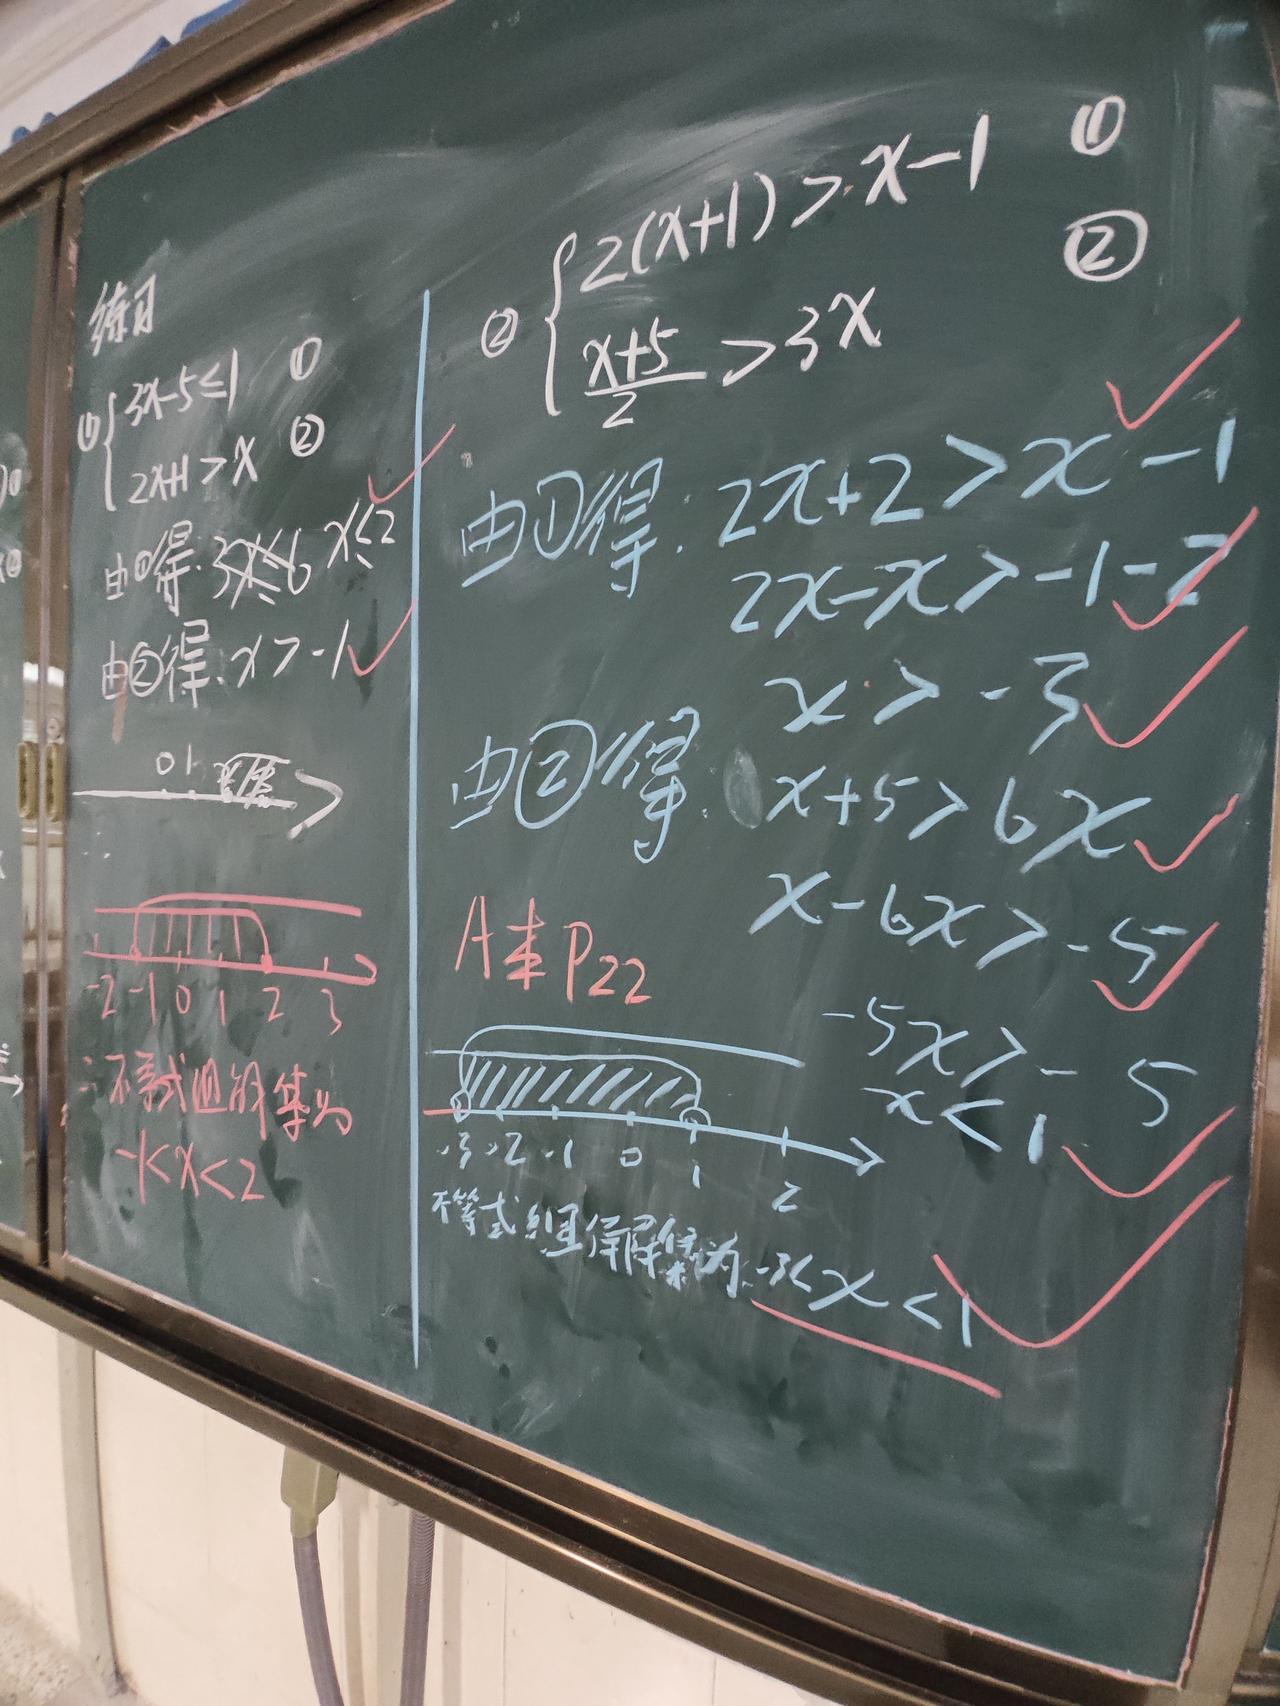 练习
① { 3x-5≤1 ①
2x+1>x ②
由①得: 3x≤6 x≤2
由②得: x>-1
0 1
-2 -1 0 1 2 3
∴不等式组的解集为
-1<x<2
② { 2(x+1)>x-1 ①
x+5/2 >3x ②
由①得: 2x+2>x-1
2x-x>-1-2
x>-3
由②得: x+5>6x
x-6x>-5
A本P22
-5x>-5
x<1
-3 -2 -1 0 1 2
不等式组得解集为 -3<x<1